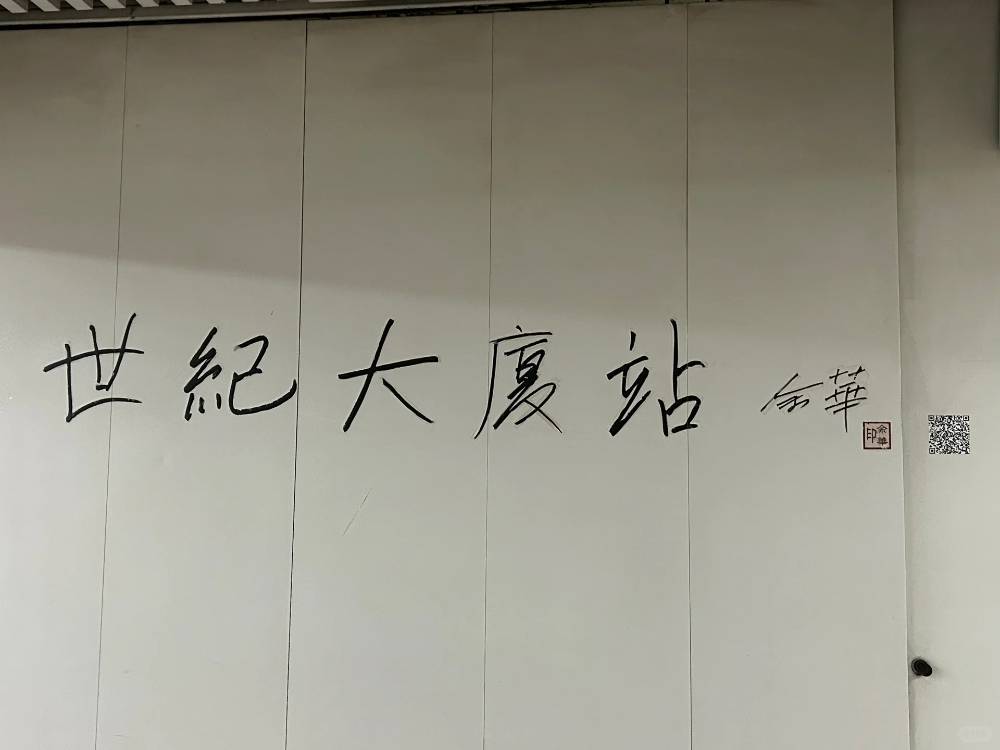 世紀大廈站 余華
余華印